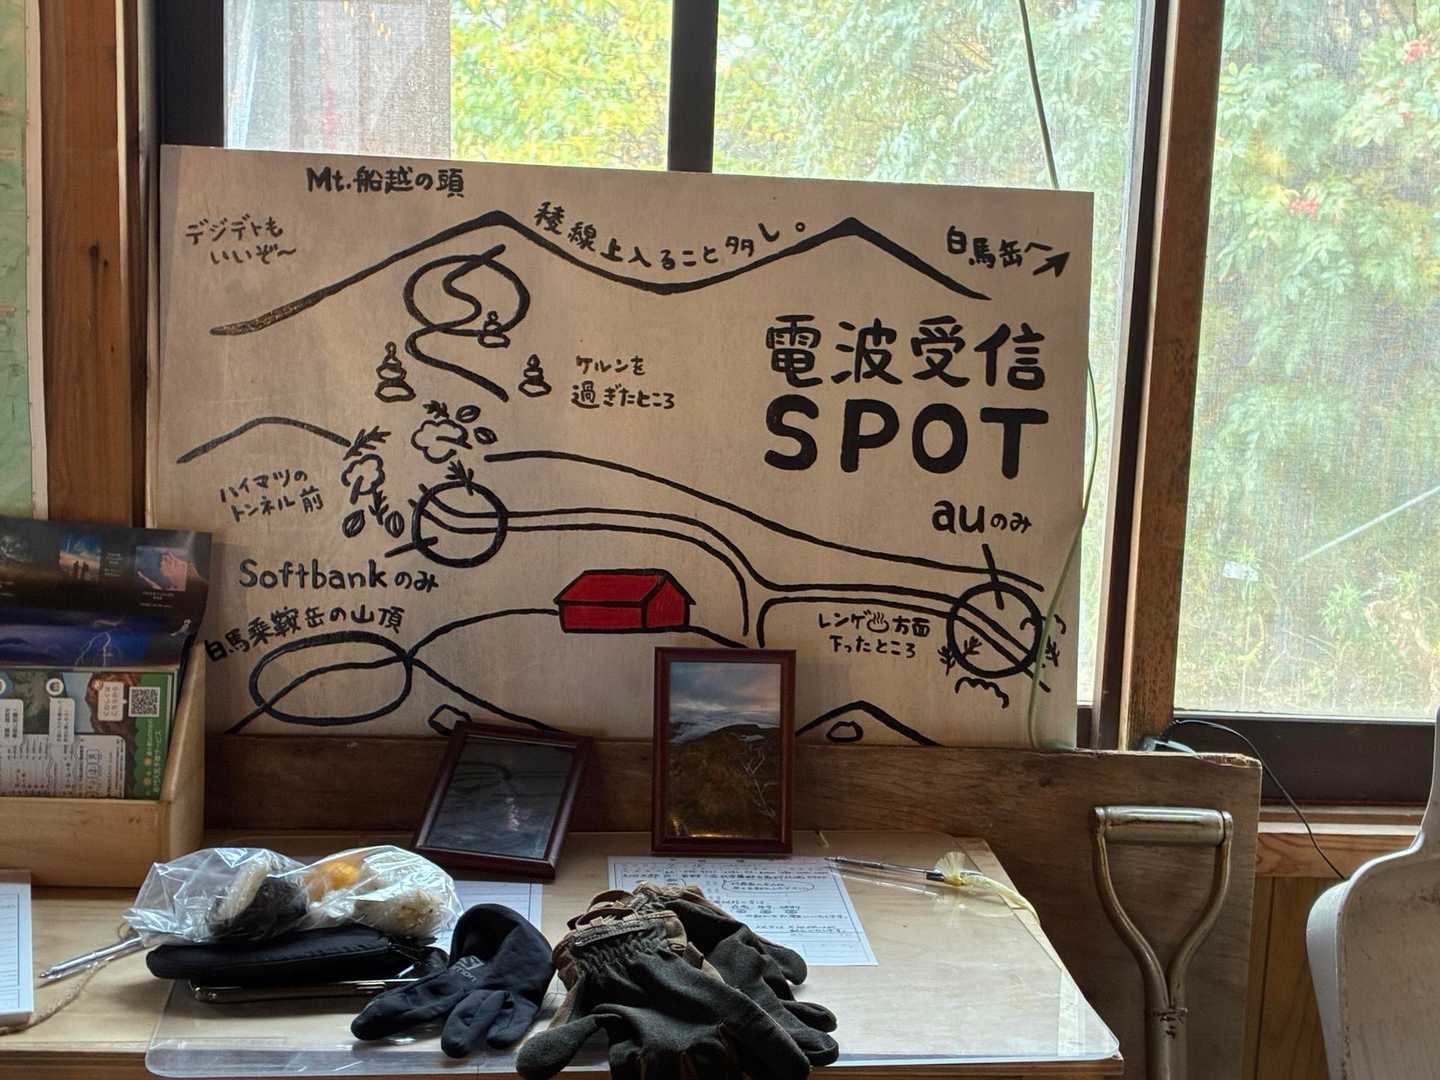 Mt.船越の頭
デジデトも
いいぞ〜
稜線上入ること多し。
白馬岳へ
電波受信
SPOT
ケルンを
過ぎたところ
ハイマツの
トンネル前
auのみ
Softbankのみ
白馬乗鞍岳の山頂
レンゲ♨方面
下ったところ